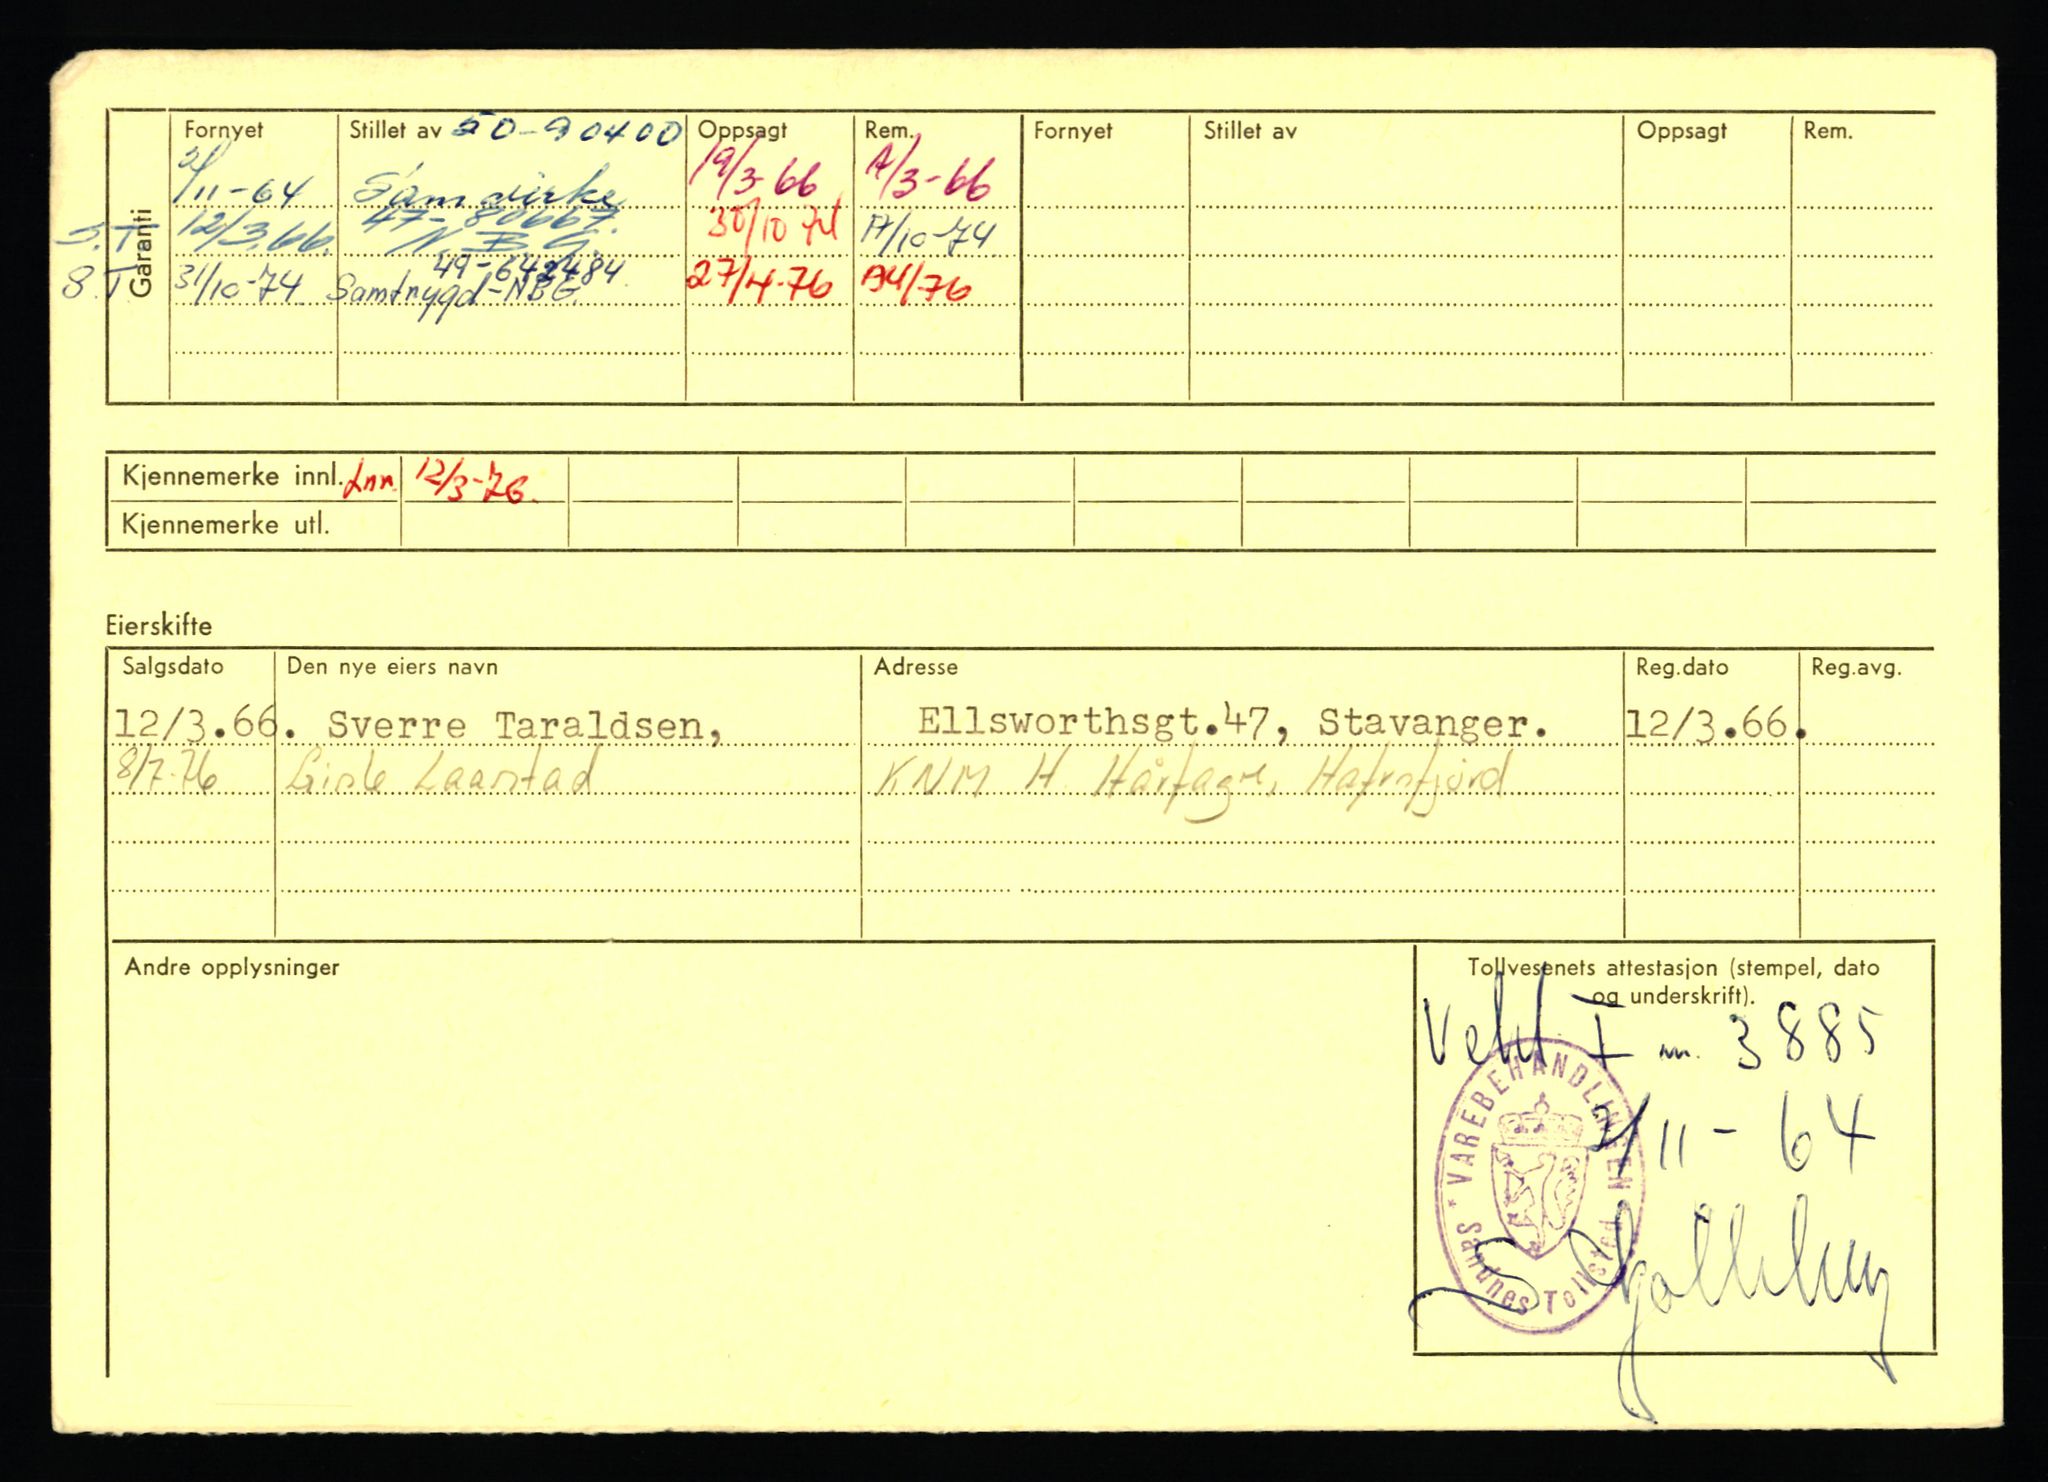 Garanti
Fornyet Stillet av 50-90400 Oppsagt Rem. Fornyet Stillet av Oppsagt Rem.
2/11-64 Samvirke 19/3-66 A/3-66
S.T. 12/3.66. 47-80667. N.B.G. 30/10 74 A/10-74
49-642484
S.T. 31/10-74 Samtrygd-NBG. 27/4-76 A4/76
Kjennemerke innl. Inn. 12/3-76.
Kjennemerke utl.
Eierskifte
Salgsdato Den nye eiers navn Adresse Reg.dato Reg.avg.
12/3.66. Sverre Taraldsen, Ellsworthsgt.47, Stavanger. 12/3.66.
8/7-76 Gisle Laarstad KNM H. Hårfagre, Hafrsfjord
Andre opplysninger
Tollvesenets attestasjon (stempel, dato
og underskrift).
I nr. 3885
2/11-64
* VAREBEHANDLINGEN *
Sandnes Tollsted